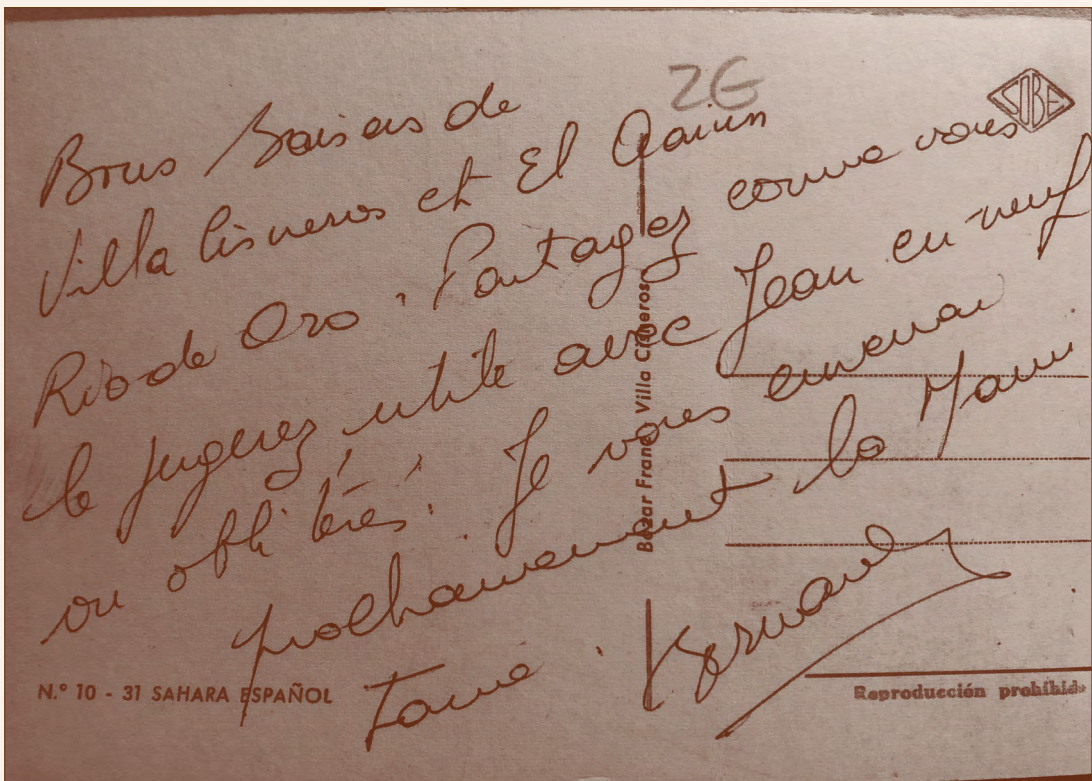 2G
SOBE
Bons Baisers de
Villa Cisneros et El Aaiun
Rio de Oro. Partagez comme vous
le jugerez utile avec Jean en neuf
ou oblitérés. Je vous enverrai
prochainement la Mauri
tanie. Bernard
Bazar Frané Villa Cisneros
N.º 10 - 31 SAHARA ESPAÑOL
Reproducción prohibida